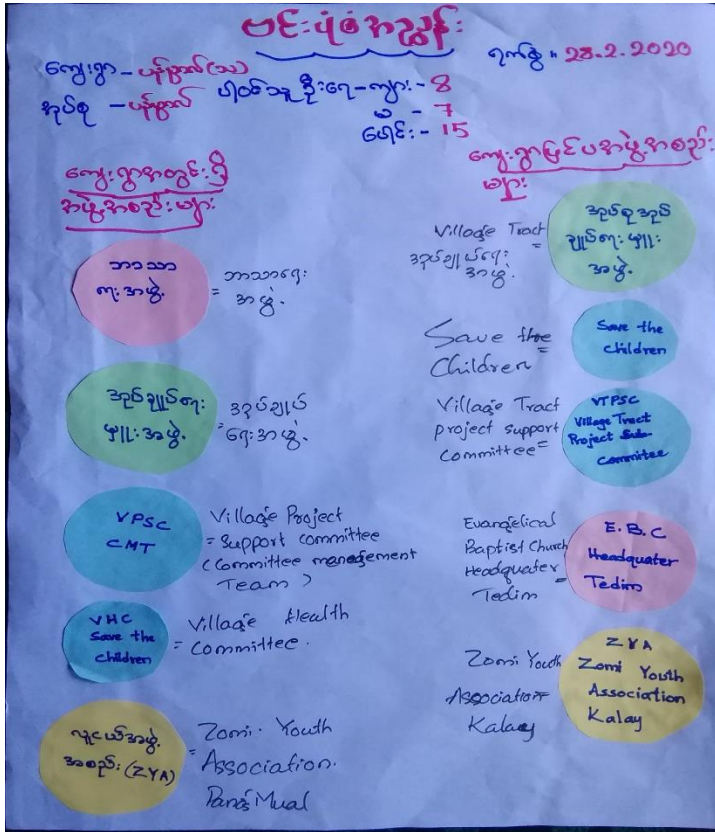 ဗင်းပုံစံအညွှန်း
ရက်စွဲ။ 28.2.2020
ကျေးရွာ - ပန်မွာလ်(သ)
အုပ်စု - ပန်မွာလ်
ပါဝင်သူဦးရေ-ကျား - 8
မ - 7
ပေါင်း - 15
ကျေးရွာအတွင်းရှိ
အဖွဲ့အစည်းများ
ဘာသာ
ရေးအဖွဲ့.
= ဘာသာရေး
အဖွဲ့.
အုပ်ချုပ်ရေး
မှူးအဖွဲ့.
= အုပ်ချုပ်
ရေးအဖွဲ့.
VPSC
CMT
Village Project
= Support committee
(Committee management
Team)
VHC
Save the
children
Village Health
= Committee.
လူငယ်အဖွဲ့.
အစည်း(ZYA)
= Zomi. Youth
Association.
Pang Mual
ကျေးရွာပြင်ပအဖွဲ့အစည်း
များ
Village Tract =
အုပ်ချုပ်ရေး
အဖွဲ့.
အုပ်စုအုပ်
ချုပ်ရေးမှူး
အဖွဲ့.
Save the =
Children
Save the
children
Village Tract
project support
committee =
VTPSC
Village Tract
Project Sub-
committee
Evangelical
Baptist Church
Headquater =
Tedim
E.B.C
Headquater
Tedim
Zomi Youth
Association =
Kalay
ZYA
Zomi Youth
Association
Kalay